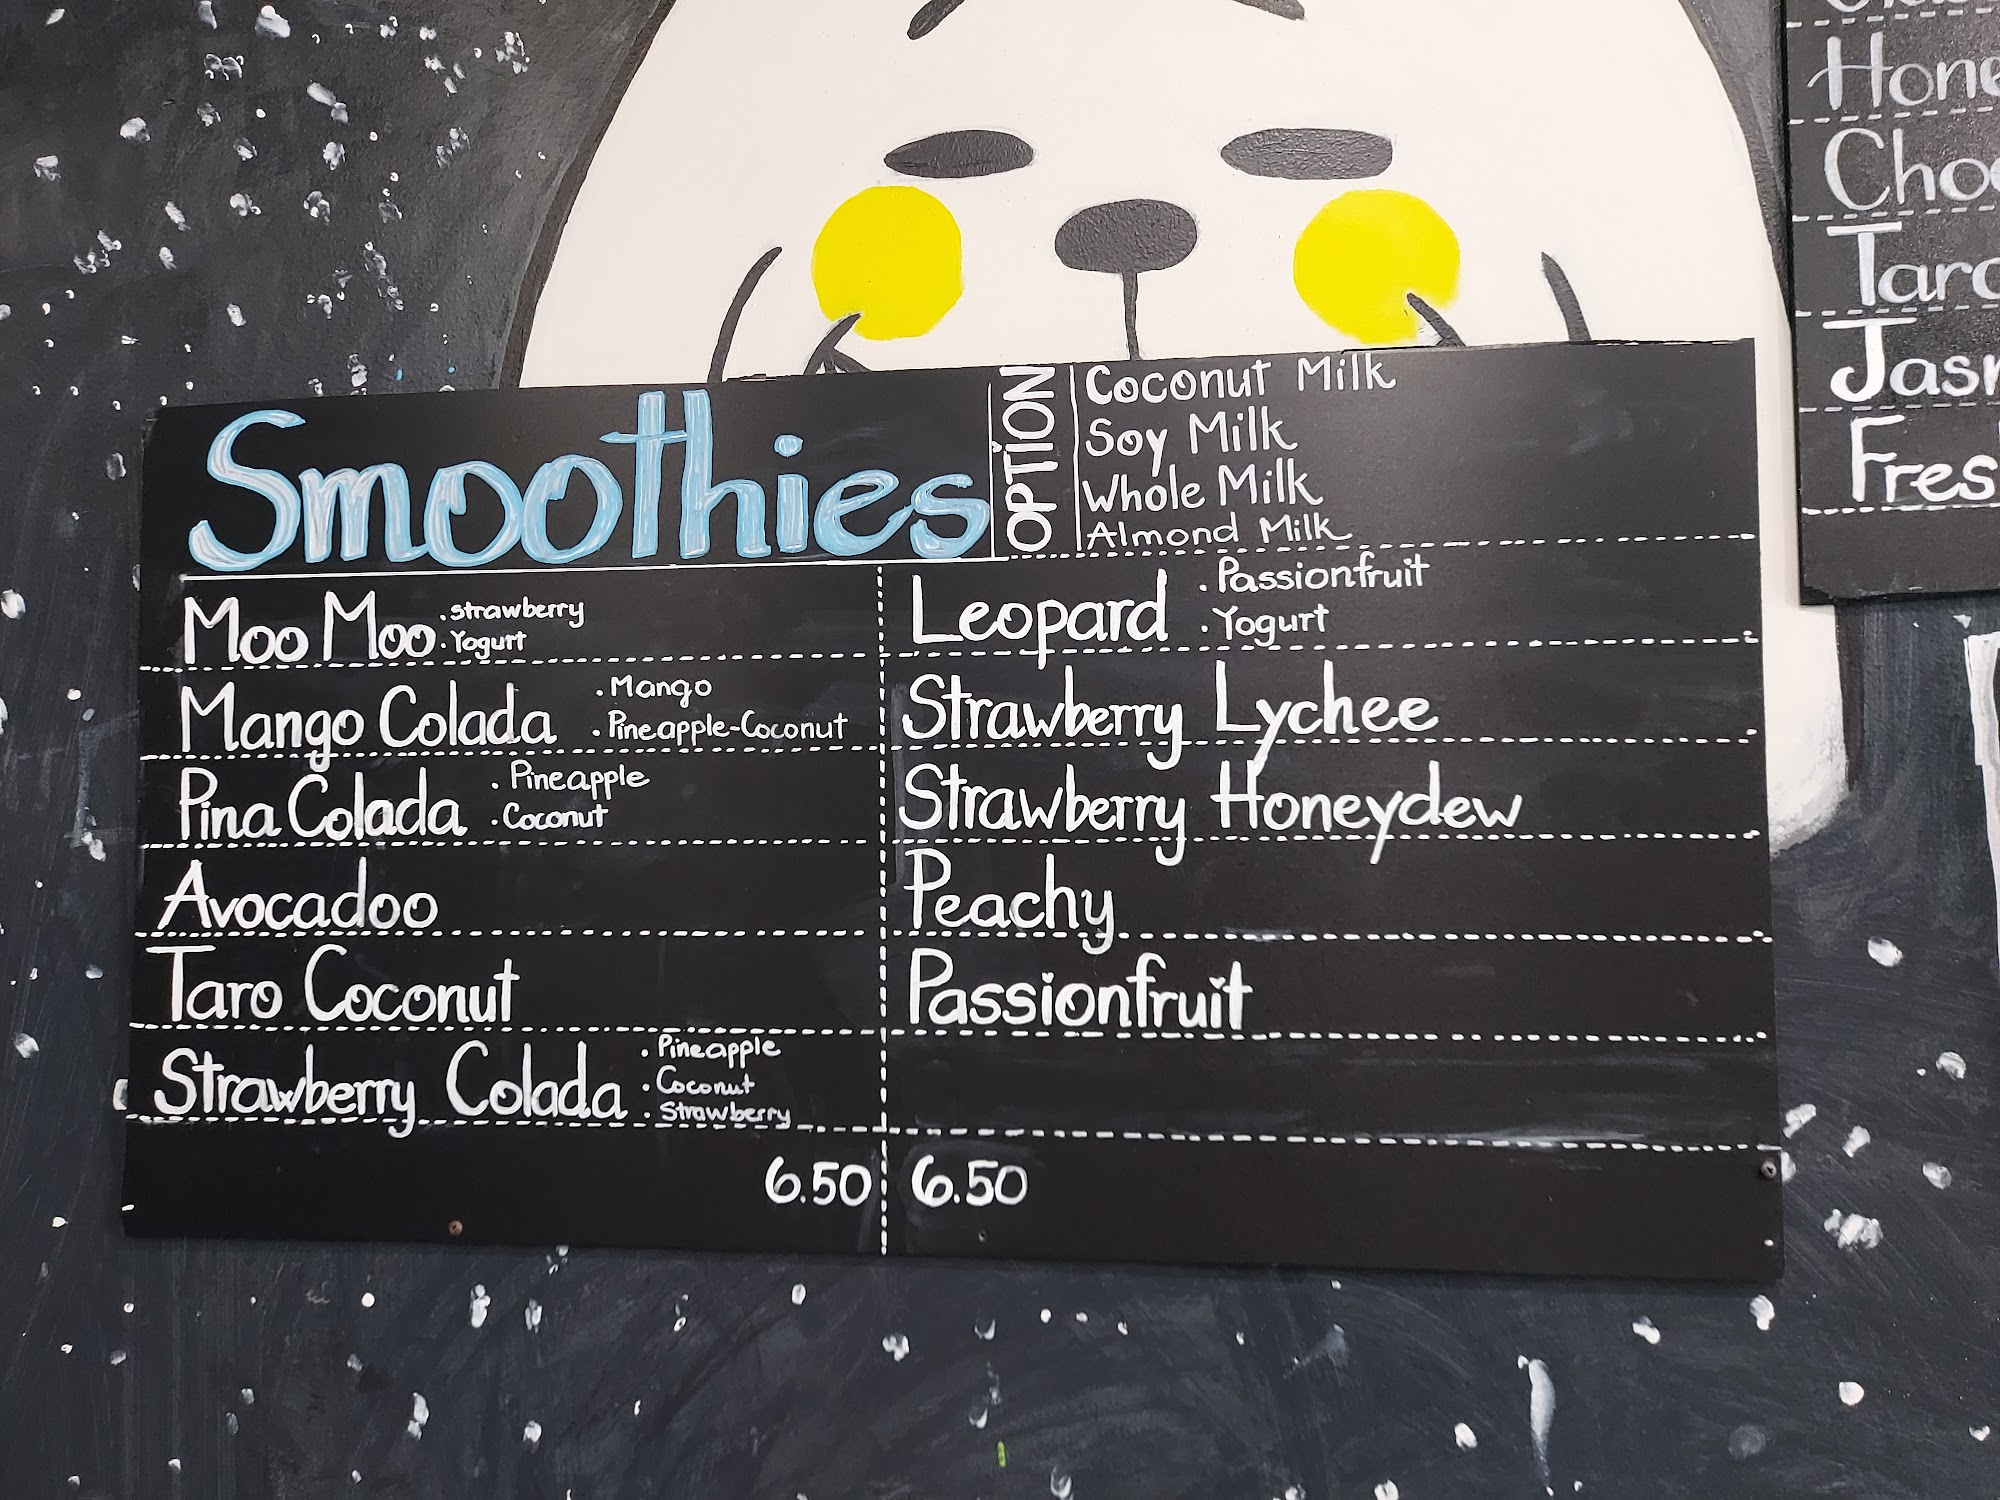 Smoothies
OPTION
Coconut Milk
Soy Milk
Whole Milk
Almond Milk
Moo Moo
. strawberry
. Yogurt
Mango Colada
. Mango
. Pineapple-Coconut
Pina Colada
. Pineapple
. Coconut
Avocadoo
Taro Coconut
Strawberry Colada
. Pineapple
. Coconut
. Strawberry
6.50
Leopard
. Passionfruit
. Yogurt
Strawberry Lychee
Strawberry Honeydew
Peachy
Passionfruit
6.50
Hone
Cho
Taro
Jas
Fres